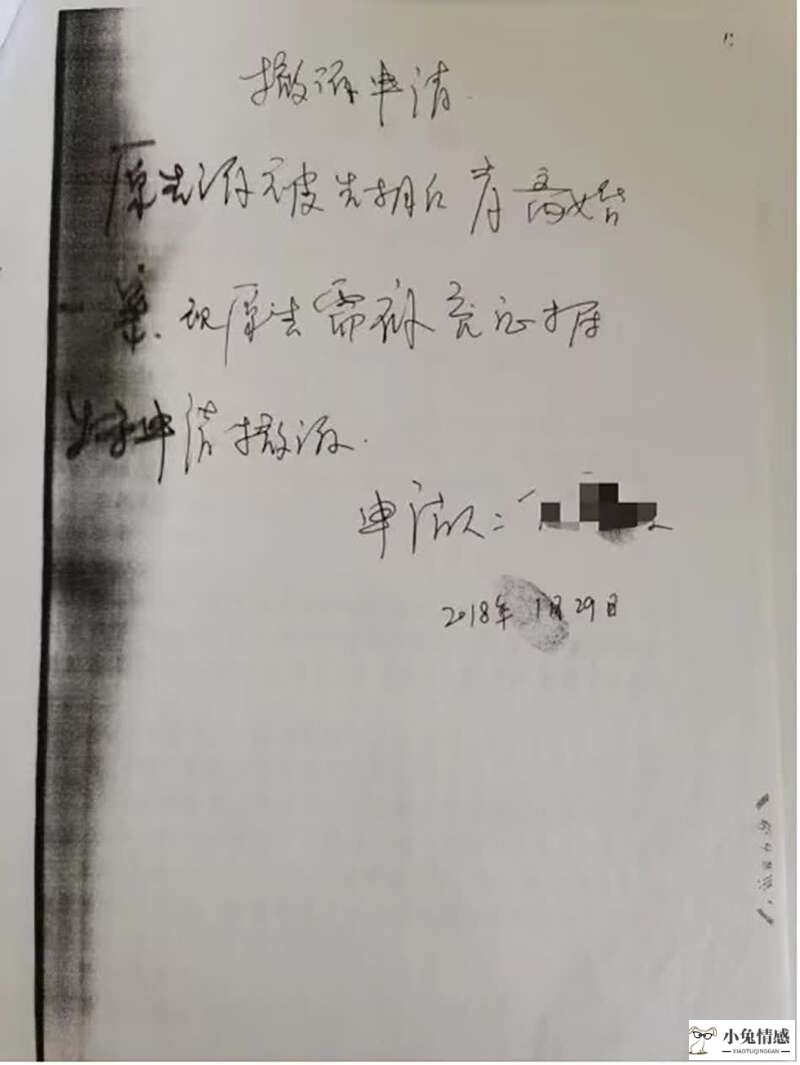 撤诉申请
原告诉被告胡 离婚
案，现原告需补充证据
特申请撤诉.
申请人：
2018年1月29日
小兔情感
XIAOTUQINGGAN